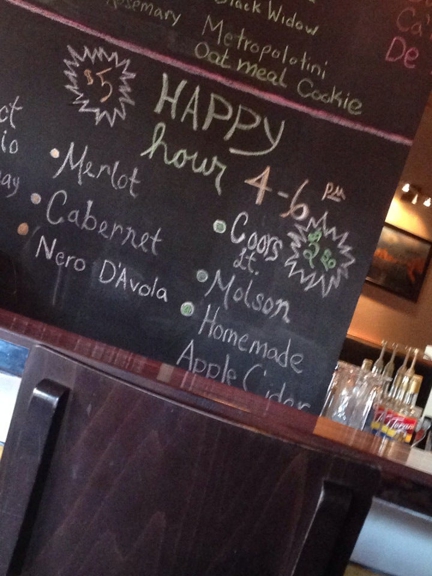 Black Widow
Rosemary
Metropolotini
Oatmeal Cookie
De
$5
HAPPY
hour
4-6 PM
Merlot
Cabernet
Nero D'Avola
Coors
Lt.
Molson
Homemade
Apple Cider